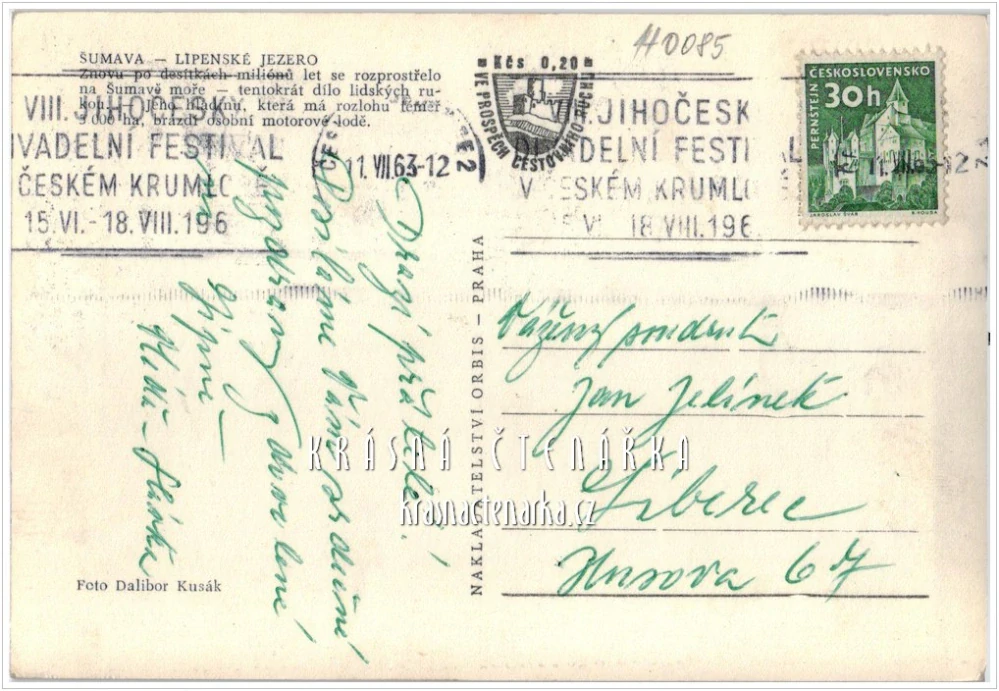 H0085
ŠUMAVA — LIPENSKÉ JEZERO
Znovu po desítkách miliónů let se rozprostřelo
na Šumavě moře — tentokrát dílo lidských ru-
kou. Jeho hladinu, která má rozlohu téměř
5 000 ha, brázdí osobní motorové lodě.
VIII. JIHOČESK
IVADELNÍ FESTIVAL
ČESKÉM KRUMLO
15.VI.- 18.VIII.196
11.VII.63-12
2
Kčs 0,20
VE PROSPĚCH CESTOVNÍHO RUCHU
JIHOČESK
DELNÍ FESTI AL
V ESKÉM KRUML
15 VI 18.VIII.196
11.VII.63-12
ČESKOSLOVENSKO
PERNŠTEJN
30h
JAROSLAV ŠVÁB
Drazí přátelé!
Posíláme Vám srdečné
pozdravy z dovolené
Vážený soudruh
Jan Jelínek
Liberec
Husova 67
NAKLADATELSTVÍ ORBIS — PRAHA
Foto Dalibor Kusák
KRÁSNÁ ČTENÁŘKA
krasnactenarka.cz